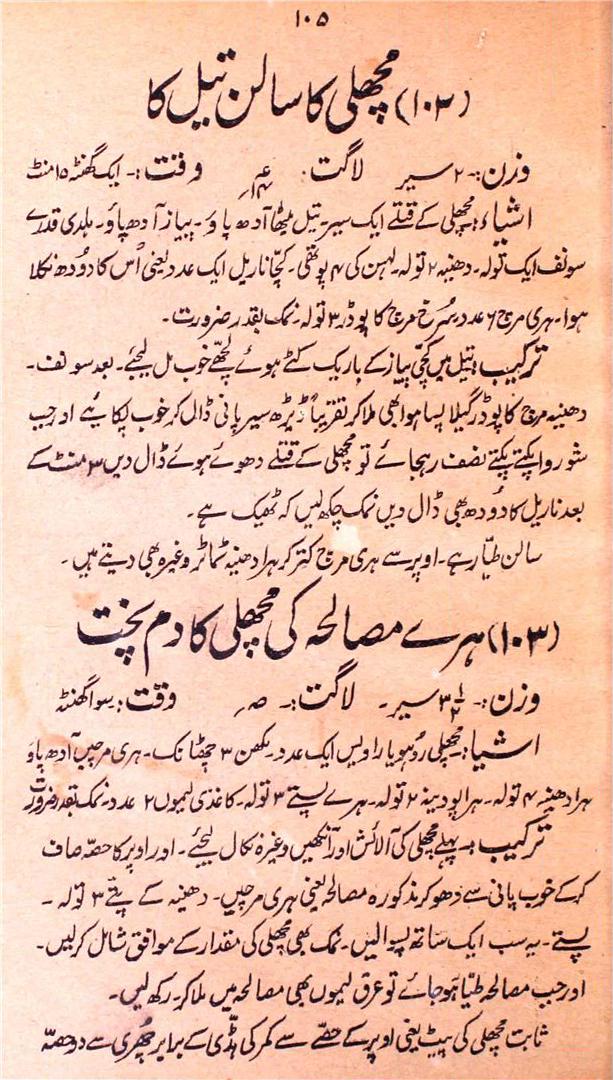 ۱۰۵
(۱۰۲) مچھلی کا سالن تیل کا
وزن:۔ ۲ سیر لاگت: وقت:۔ ایک گھنٹہ ۱۵ منٹ
اشیاء: مچھلی کے قتلے ایک سیر۔ تیل میٹھا آدھ پاؤ۔ پیاز آدھ پاؤ۔ ہلدی قدرے
سونف ایک تولہ۔ دھنیہ ۲ تولہ۔ لہسن کی ۴ پوتھی۔ کچّا ناریل ایک عدد یعنی اُس کا دودھ نکلا
ہوا۔ ہری مرچ ۶ عدد۔ سُرخ مرچ کا پوڈر ۳ تولہ۔ نمک بقدر ضرورت۔
ترکیب: تیل میں کچّی پیاز کے باریک کٹے ہوئے لچھے خوب مل لیجئے۔ بعد سونف۔
دھنیہ مرچ کا پوڈر گیلا پسا ہوا بھی ملا کر تقریباً ڈیڑھ سیر پانی ڈال کر خوب پکائیے اور جب
شوروا پکتے پکتے نصف رہجائے تو مچھلی کے قتلے دھوئے ہوئے ڈال دیں ۳ منٹ کے
بعد ناریل کا دودھ بھی ڈال دیں نمک چکھ لیں کہ ٹھیک ہے۔
سالن طیّار ہے۔ اوپر سے ہری مرچ کتر کر ہرا دھنیہ ٹماٹر وغیرہ بھی دیتے ہیں۔
(۱۰۳) ہرے مصالحہ کی مچھلی کا دم پخت
وزن:۔ ۳ ۱/۲ سیر۔ لاگت:۔ وقت: سوا گھنٹہ
اشیا: مچھلی روہو یا راویس ایک عدد۔ مکھن ۳ چھٹانک۔ ہری مرچیں آدھ پاؤ
ہرا دھنیہ ۴ تولہ۔ ہرا پودینہ ۲ تولہ۔ ہرے پستے ۳ تولہ۔ کاغذی لیموں ۲ عدد۔ نمک بقدر ضرورت
ترکیب:۔ پہلے مچھلی کی آلائش اور آنکھیں وغیرہ نکال لیجئے۔ اور اوپر کا حصّہ صاف
کر کے خوب پانی سے دھو کر مذکورہ مصالحہ یعنی ہری مرچیں۔ دھنیہ کے پتّے ۳ تولہ۔
پستے۔ یہ سب ایک ساتھ پسوا لیں۔ نمک بھی مچھلی کی مقدار کے موافق شامل کر لیں۔
اور جب مصالحہ طیّار ہو جائے تو عرق لیموں بھی مصالحہ میں ملا کر رکھ لیں۔
ثابت مچھلی کی پیٹ یعنی اوپر کے حصّے سے کمر کی ہڈّی کے برابر چھری سے دو حصّہ